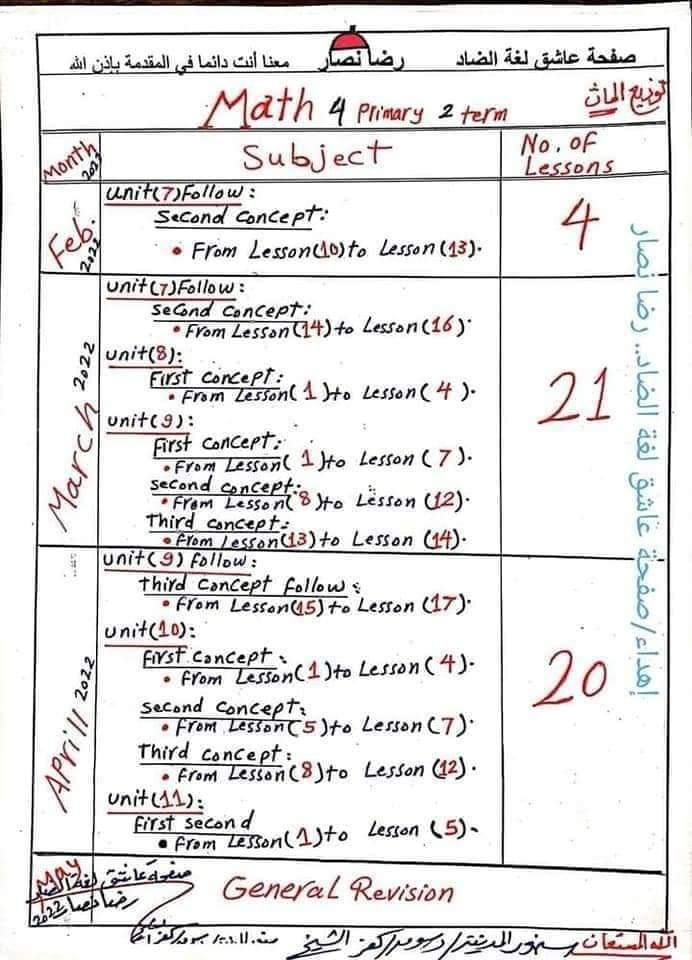 صفحة عاشق لغة الضاد رضا نصار معنا أنت دائما في المقدمة بإذن الله
توزيع الماث
Math 4 Primary 2 term
Month 2022
Subject
No. of Lessons
Feb. 2022
unit(7)Follow:
Second concept:
• From Lesson(10)to Lesson(13).
4
March 2022
unit(7)Follow:
second concept:
• From Lesson(14)to Lesson(16).
unit(8):
First concept:
• From Lesson(1)to Lesson(4).
unit(9):
First concept:
• From Lesson(1)to Lesson(7).
second concept:
• From Lesson(8)to Lesson(12).
Third concept:
• From Lesson(13)to Lesson(14).
21
Aprill 2022
unit(9) follow:
third concept follow:
• From Lesson(15)to Lesson(17).
unit(10):
First concept:
• From Lesson(1)to Lesson(4).
second concept:
• From Lesson(5)to Lesson(7).
Third concept:
• From Lesson(8)to Lesson(12).
unit(11):
First second
• From Lesson(1)to Lesson(5).
20
إهداء/صفحة عاشق لغة الضاد.. رضا نصار
May 2022
صفحة عاشق لغة الضاد
رضا نصار
General Revision
الله المستعان
كفر الشيخ